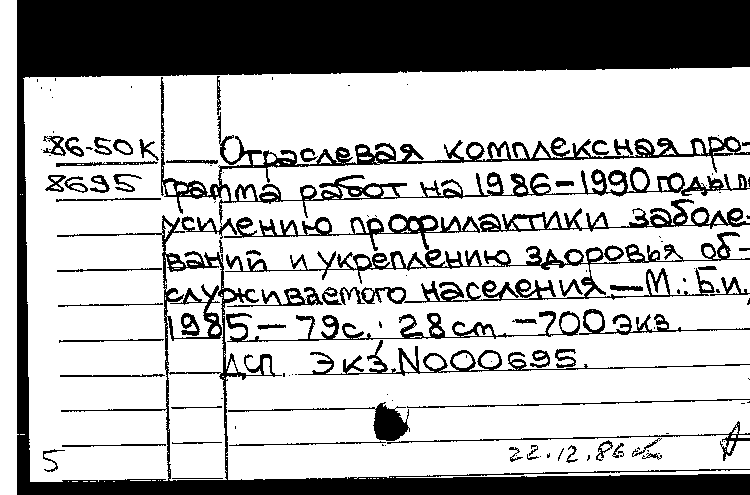 86-50К Отраслевая комплексная про-
8695 грамма работ на 1986-1990 годы по
усилению профилактики заболе-
ваний и укреплению здоровья об-
служиваемого населения.—М.: Б.и.,
1985.— 79с.; 28см.—700экз.
ДСП. Экз.N000695.
5 22.12.86